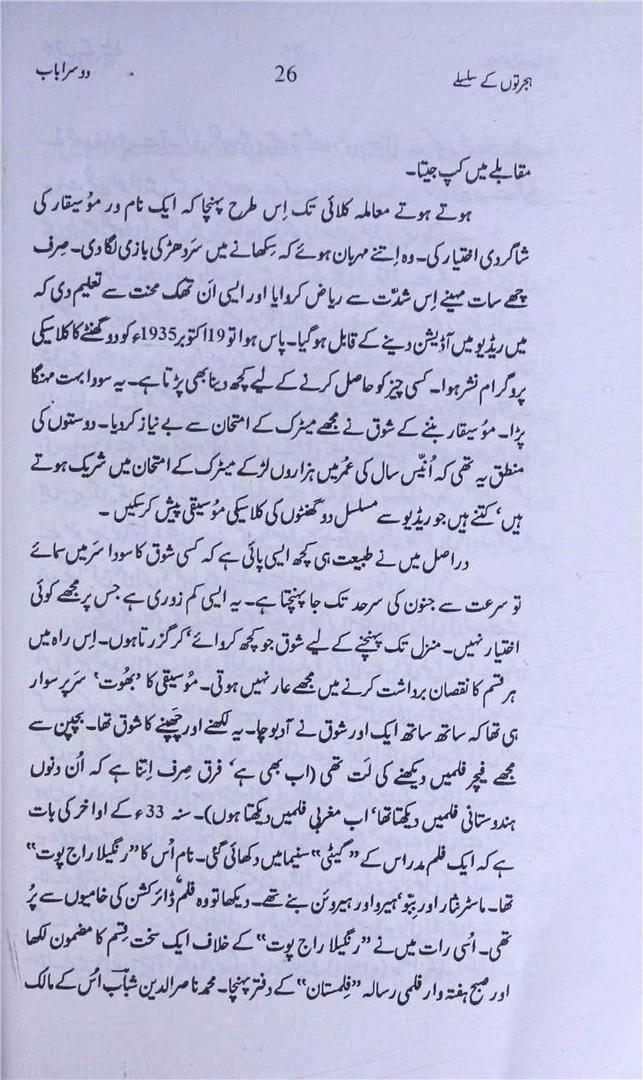 ہجرتوں کے سلسلے 26 دوسرا باب
مقابلے میں کپ جیتا۔
ہوتے ہوتے معاملہ کلائی تک اِس طرح پہنچا کہ ایک نام ور موسیقار کی
شاگردی اختیار کی۔ وہ اِتنے مہربان ہوئے کہ سِکھانے میں سَر دھڑ کی بازی لگا دی۔ صِرف
چھے سات مہینے اِس شدّت سے ریاض کروایا اور ایسی اَن تھک محنت سے تعلیم دی کہ
میں ریڈیو میں آڈیشن دینے کے قابل ہو گیا۔ پاس ہوا تو 19 اکتوبر 1935ء کو دو گھنٹے کا کلاسیکی
پروگرام نشر ہوا۔ کسی چیز کو حاصل کرنے کے لیے کچھ دینا بھی پڑتا ہے۔ یہ سودا بہت مہنگا
پڑا۔ موسیقار بننے کے شوق نے مجھے میٹرک کے امتحان سے بے نیاز کر دیا۔ دوستوں کی
منطق یہ تھی کہ اُنیّس سال کی عمر میں ہزاروں لڑکے میٹرک کے امتحان میں شریک ہوتے
ہیں‘ کتنے ہیں جو ریڈیو سے مسلسل دو گھنٹوں کی کلاسیکی موسیقی پیش کر سکیں۔
دراصل میں نے طبیعت ہی کچھ ایسی پائی ہے کہ کسی شوق کا سودا سَر میں سمائے
تو سرعت سے جنون کی سرحد تک جا پہنچتا ہے۔ یہ ایسی کم زوری ہے جس پر مجھے کوئی
اختیار نہیں۔ منزل تک پہنچنے کے لیے شوق جو کچھ کروائے‘ کر گزرتا ہوں۔ اِس راہ میں
ہر قسم کا نقصان برداشت کرنے میں مجھے عار نہیں ہوتی۔ موسیقی کا ’بھُوت‘ سَر پر سوار
ہی تھا کہ ساتھ ساتھ ایک اور شوق نے آ دبوچا۔ یہ لکھنے اور چَھپنے کا شوق تھا۔ بچپن سے
مجھے فیچر فلمیں دیکھنے کی لَت تھی (اب بھی ہے‘ فرق صِرف اِتنا ہے کہ اُن دنوں
ہندوستانی فلمیں دیکھتا تھا‘ اب مغربی فلمیں دیکھتا ہوں)۔ سنہ 33ء کے اواخر کی بات
ہے کہ ایک فلم مدراس کے ”گیٹی“ سنیما میں دکھائی گئی۔ نام اُس کا ”رنگیلا راج پوت“
تھا۔ ماسٹر نثار اور بِبّو‘ ہیرو اور ہیروئن بنے تھے۔ دیکھا تو وہ فلم‘ ڈائرکشن کی خامیوں سے پُر
تھی۔ اُسی رات میں نے ”رنگیلا راج پوت“ کے خلاف ایک سخت قِسم کا مضمون لکھا
اور صبح ہفتہ وار فلمی رسالہ ”فلمستان“ کے دفتر پہنچا۔ محمد ناصر الدین شباؔب اُس کے مالک